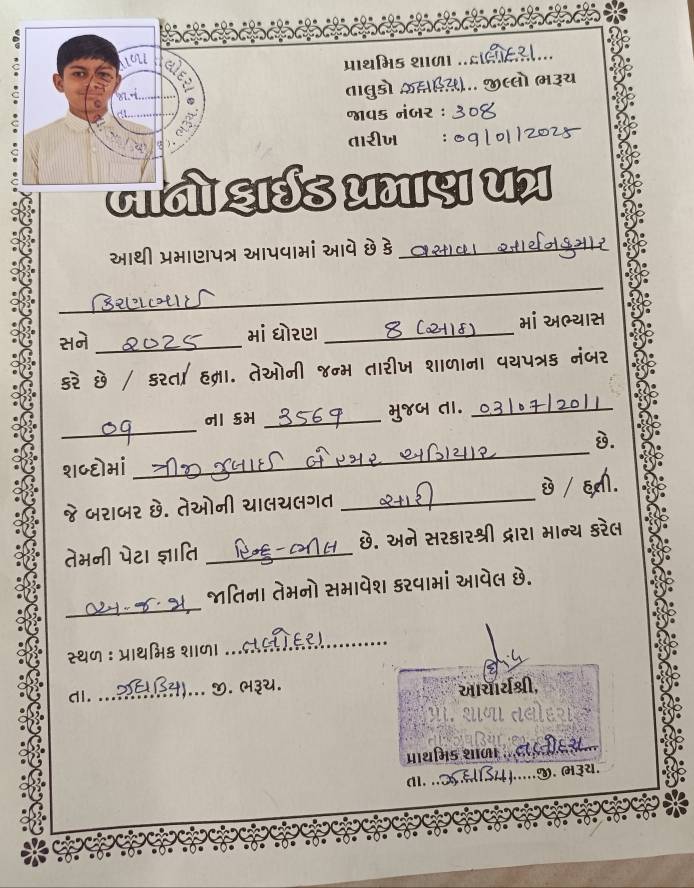 પ્રાથમિક શાળા ..તલોદરા...
તાલુકો ઝઘડિયા... જીલ્લો ભરૂચ
જાવક નંબર : 308
તારીખ : 09/01/2025
શાળા તલોદરા
જા.નં.
તા.
બોનોફાઈડ પ્રમાણ પત્ર
આથી પ્રમાણપત્ર આપવામાં આવે છે કે વસાવા આર્યનકુમાર
કિરણભાઈ
સને ૨૦૨૫ માં ધોરણ 8 (આઠ) માં અભ્યાસ
કરે છે / કરતા હતા. તેઓની જન્મ તારીખ શાળાના વયપત્રક નંબર
09 ના ક્રમ 3569 મુજબ તા. 03/07/2011
શબ્દોમાં ત્રીજી જુલાઈ બે હજાર અગિયાર છે.
જે બરાબર છે. તેઓની ચાલચલગત સારી છે / હતી.
તેમની પેટા જ્ઞાતિ હિન્દુ-ભીલ છે. અને સરકારશ્રી દ્વારા માન્ય કરેલ
અ.જ.જા. જાતિના તેમનો સમાવેશ કરવામાં આવેલ છે.
સ્થળ : પ્રાથમિક શાળા ..તલોદરા...
તા. ...ઝઘડિયા... જી. ભરૂચ.
આચાર્યશ્રી,
પ્રા. શાળા તલોદરા
પ્રાથમિક શાળા ..તલોદરા...
તા. ..ઝઘડિયા.....જી. ભરૂચ.